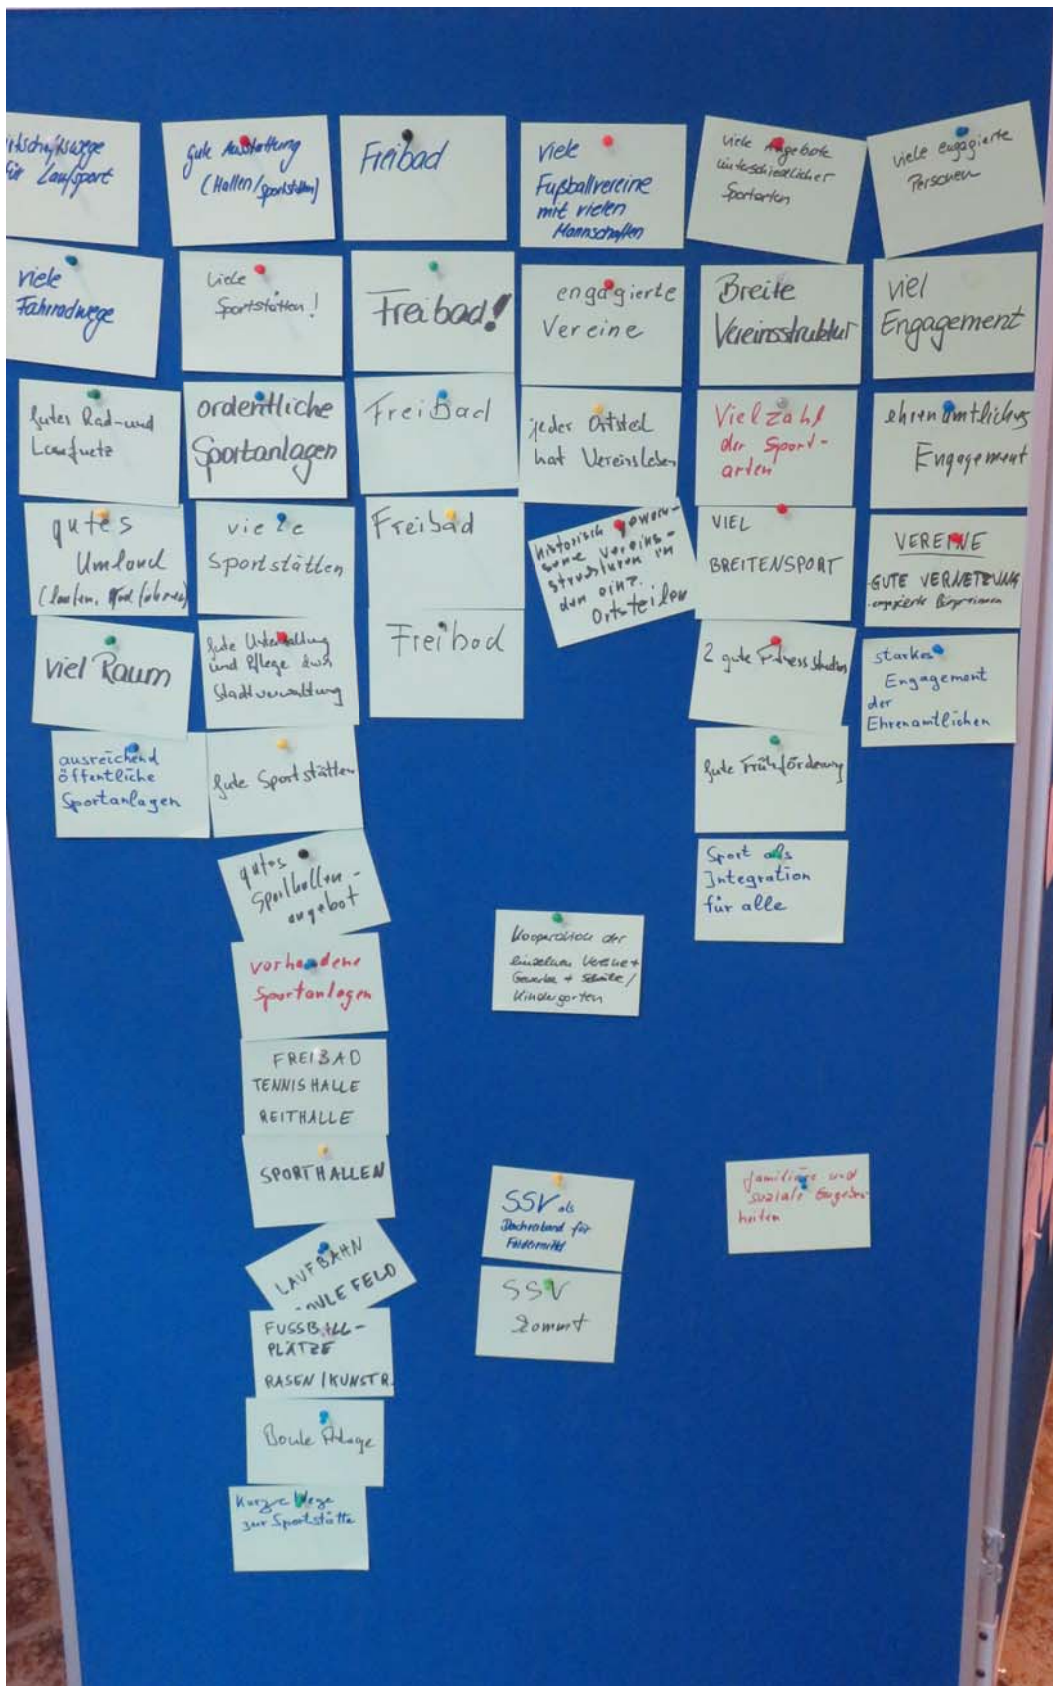 für Laufsport
viele
Fahrradwege
gutes Rad- und
Laufnetz
gutes
Umland
(laufen, Rad fahren)
viel Raum
ausreichend
öffentliche
Sportanlagen
gute Ausstattung
(Hallen/Sportstätten)
viele
Sportstätten!
ordentliche
Sportanlagen
viele
Sportstätten
gute Unterhaltung
und Pflege durch
Stadtverwaltung
gute Sportstätten
gutes
Sporthallen-
angebot
vorhandene
Sportanlagen
FREIBAD
TENNISHALLE
REITHALLE
SPORTHALLEN
LAUFBAHN
BOULE FELD
FUSSBALL-
PLÄTZE
RASEN/KUNSTR.
Boule Anlage
Kurze Wege
zur Sportstätte
Freibad
Freibad!
Freibad
Freibad
Freibad
viele
Fußballvereine
mit vielen
Mannschaften
engagierte
Vereine
jeder Ortsteil
hat Vereinsleben
historisch gewach-
sene Vereins-
strukturen in
den einz.
Ortsteilen
Kooperation der
einzelnen Vereine +
Gewerbe + Schule/
Kindergarten
SSV als
Dachverband für
Fördermittel
SSV
kommt
viele Angebote
unterschiedlicher
Sportarten
Breite
Vereinsstruktur
Vielzahl
der Sport-
arten
VIEL
BREITENSPORT
2 gute Fitness studios
gute Frühförderung
Sport als
Integration
für alle
familiäre und
soziale
viele engagierte
Personen
viel
Engagement
ehrenamtliches
Engagement
VEREINE
GUTE VERNETZUNG
engagierte Bürgerinnen
starkes
Engagement
der
Ehrenamtlichen